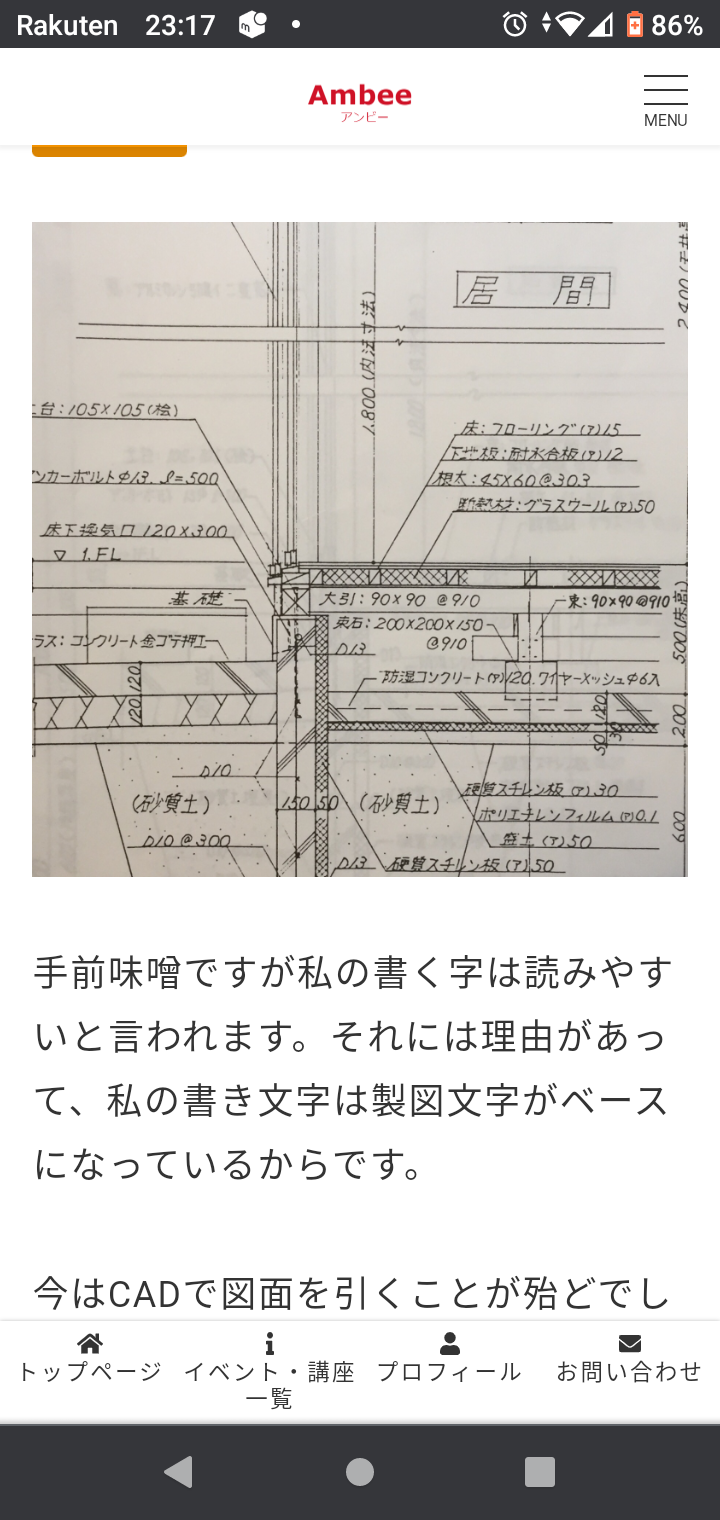 Rakuten 23:17 86%
Ambee
アンビー
MENU
居間
2,400
1,800 (内法寸法)
台:105×105(桧)
ンカーボルトΦ13, l=500
床下換気口 120×300
▽ 1.FL
基礎
ラス:コンクリート金ゴテ押エ
床:フローリング(ア)15
下地板:耐水合板(ア)12
根太:45×60@303
断熱材:グラスウール(ア)50
大引:90×90 @910
束:90×90@910
束石:200×200×150
@910
D13
防湿コンクリート(ア)120.ワイヤーメッシュΦ6入
500(床高)
120 120
120
50
30
200
D10
(砂質土)
150 50
(砂質土)
硬質スチレン板 (ア)30
ポリエチレンフィルム(ア)0.1
盛土(ア)50
600
D10 @300
D13
硬質スチレン板(ア)50
手前味噌ですが私の書く字は読みやす
いと言われます。それには理由があっ
て、私の書き文字は製図文字がベース
になっているからです。
今はCADで図面を引くことが殆どでし
トップページ
イベント・講座
一覧
プロフィール
お問い合わせ